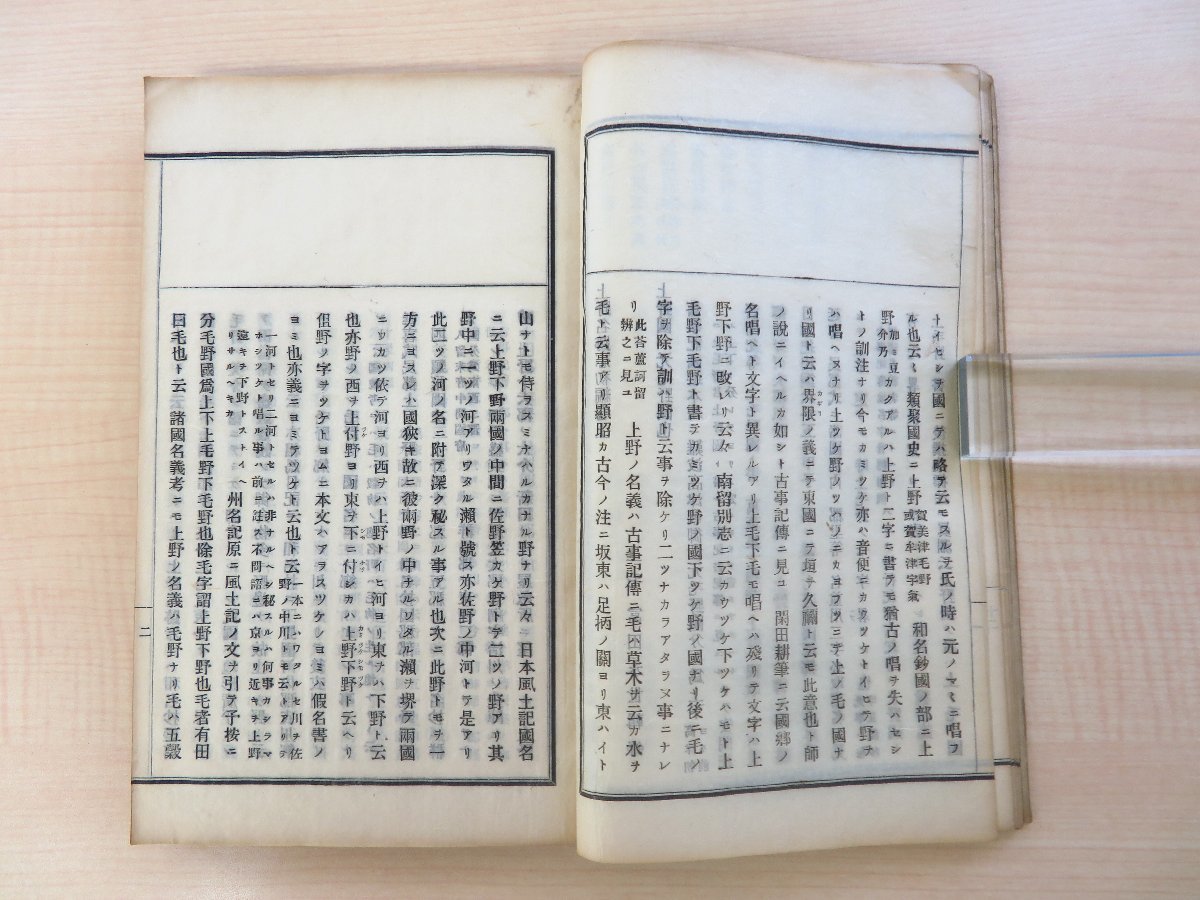 ナイセシヲ國ニテハ略テ云モスルヲ氏ノ時ハ元ノマヽニ唱フ
ル也云々類聚國史ニ上野賀美津毛野或賀牟津字氣 和名鈔國ノ部ニ上
野加三豆介乃カクアルハ上野ト二字ニ書テモ猶古ノ唱ヲ失ハセシ
トノ訓注ナリ今モカミツケ亦ハ音便ニカウツケトイヒテ野ヲ
ハ唱ヘヌナリ上ツケ野ノツハノニカヨフツニテ上ノ毛ノ國ナ
リ國ト云ハ界限ノ義ニテ東國ニテ垣ヲ久禰ト云モ此意也ト師
ノ說ニイヘルカ如シト古事記傳ニ見ユ 閑田耕筆ニ云國鄕ノ
名唱ヘト文字ト異レルアリ上毛下毛モ唱ヘハ殘リテ文字ハ上
野下野ニ改レリ云々 南留別志ニカウツケ下ツケハモト上
毛野下毛野ト書テカミツケ野ノ國下ツケ野ノ國ナリ後ニ毛ノ
字ヲ除テ訓ハ野ト云事ヲ除ケリ二ツナカラアタラヌ事ニナレ
リ此荅蘆訶留辨之ニ見ユ 上野ノ名義ハ古事記傳ニ毛ハ草木ヲ云カ氷ヲ
毛ト云事アリ顯昭カ古今ノ注ニ坂東ハ足柄ノ關ヨリ東ハイト
山ナトモ侍ヲスミナハルカナル野ナリ云々 日本風土記國名
ニ云上野下野兩國ノ中間ニ佐野笠カケ野トテ二ツノ野アリ其
野中ニ一ツノ河アリワタル瀨ト號ス亦佐野ノ中河トテ是アリ
此二ツノ河ノ名ニ附テ深ク秘スル事アル也次ニ此野トモヲ一
方ニヨスレハ國狹キ故ニ彼兩野ノ中ナルワタル瀨ヲ堺テ兩國
ニワカツ依テ河ヨリ西ヲハ上野トイヒ河ヨリ東ヲハ下野ト云
也亦野ノ西ヲ上付野ヨリ東ヲ下ニ付シカハ上野下野ト云ヘリ
但野ノ字ヲツケトヨムニ本文ハアラスツケシヨミハ假名書ノ
ヨミ也亦義ニヨミテツケト云也ト云一本ニハワタルセ川ヲ佐野ノ中川トモ云トアリテ
一河トセリ二河トセルハ非ナルヘシ秘スルハ何事カシラマホシツケト唱ル事ハ前ニ註ス不問談ニハ京ヨリ近キヲ上野
遠キヲ下野トストイヘリサルヘキカ 州名記原ニ風土記ノ文ヲ引テ予按ニ
分毛野國爲上下上毛野下毛野也除毛字謂上野下野也毛者有田
曰毛也ト云 諸國名義考ニモ上野ノ名義ハ毛野ナリ毛ハ五穀
二